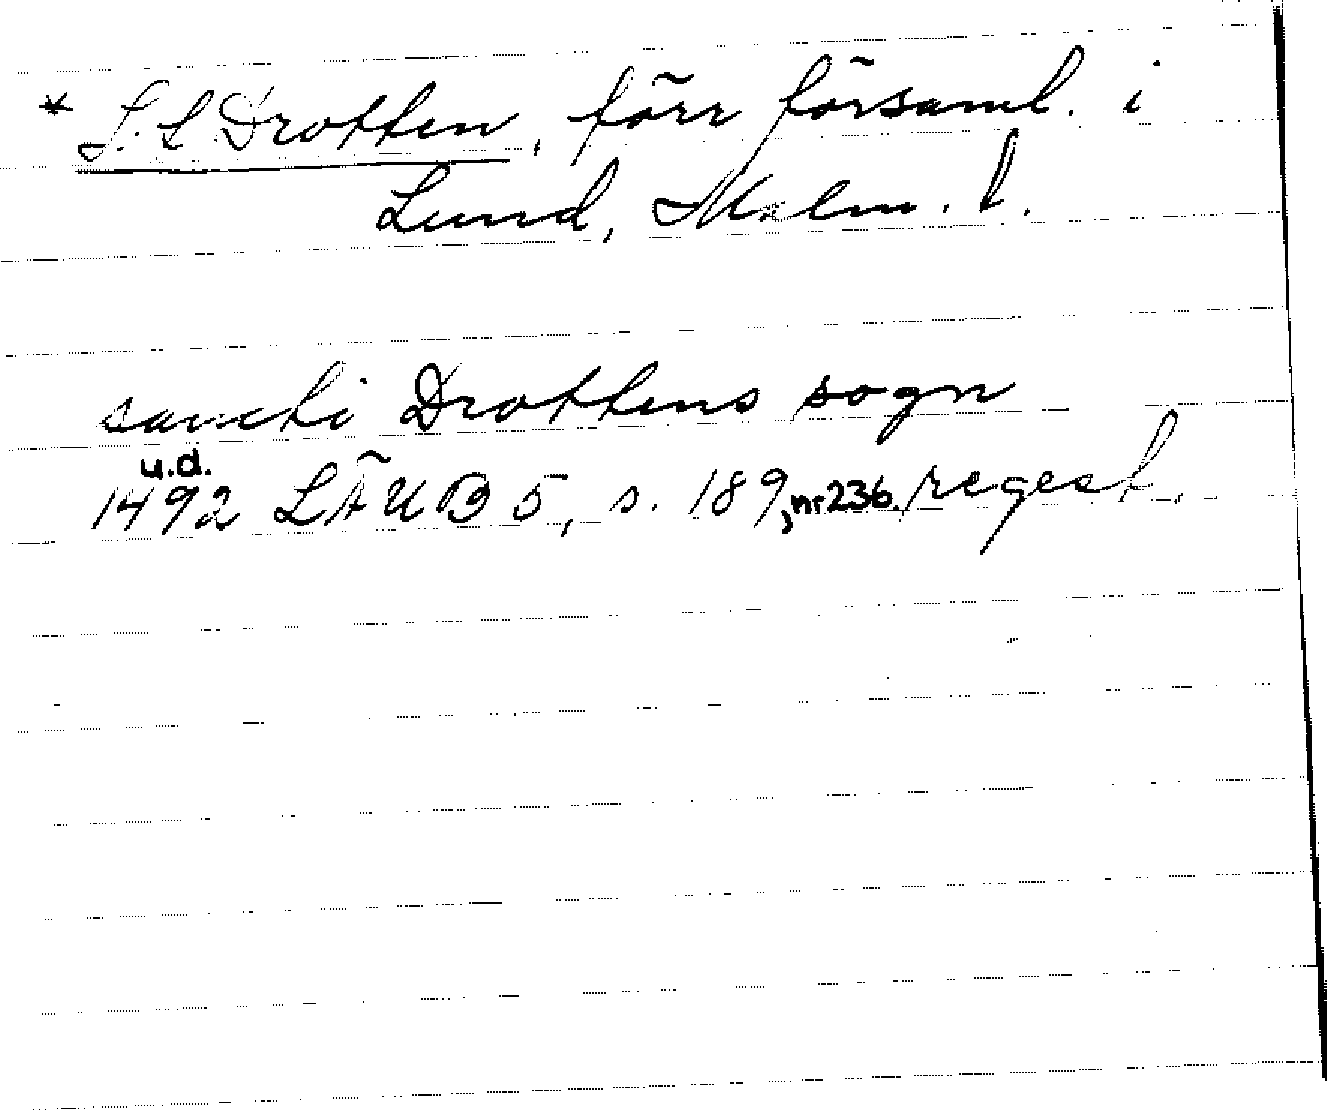 * S:t Drotten, förr församl. i
Lund, Malm. l.
sancti Drottens sogn
u.d.
1492 LÄUB 5, s. 189, nr 236. regest.